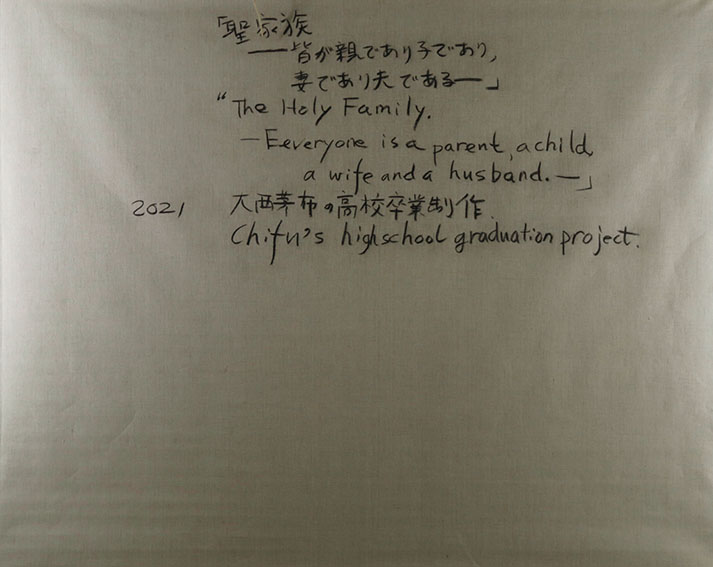 「聖家族
――皆が親であり子であり,
妻であり夫である―」
“The Holy Family.
―Eeveryone is a parent, a child,
a wife and a husband.―」
2021 大西茅布の高校卒業制作.
Chifu's highschool graduation project.